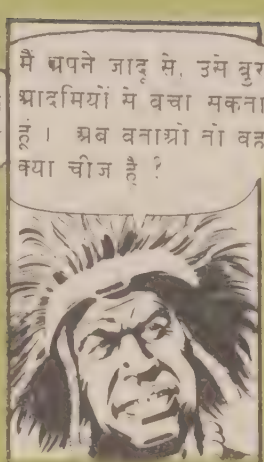 मैं अपने जादू से, उसे बुरे
आदमियों से बचा सकता
हूं । अब बताओ तो वह
क्या चीज है ?